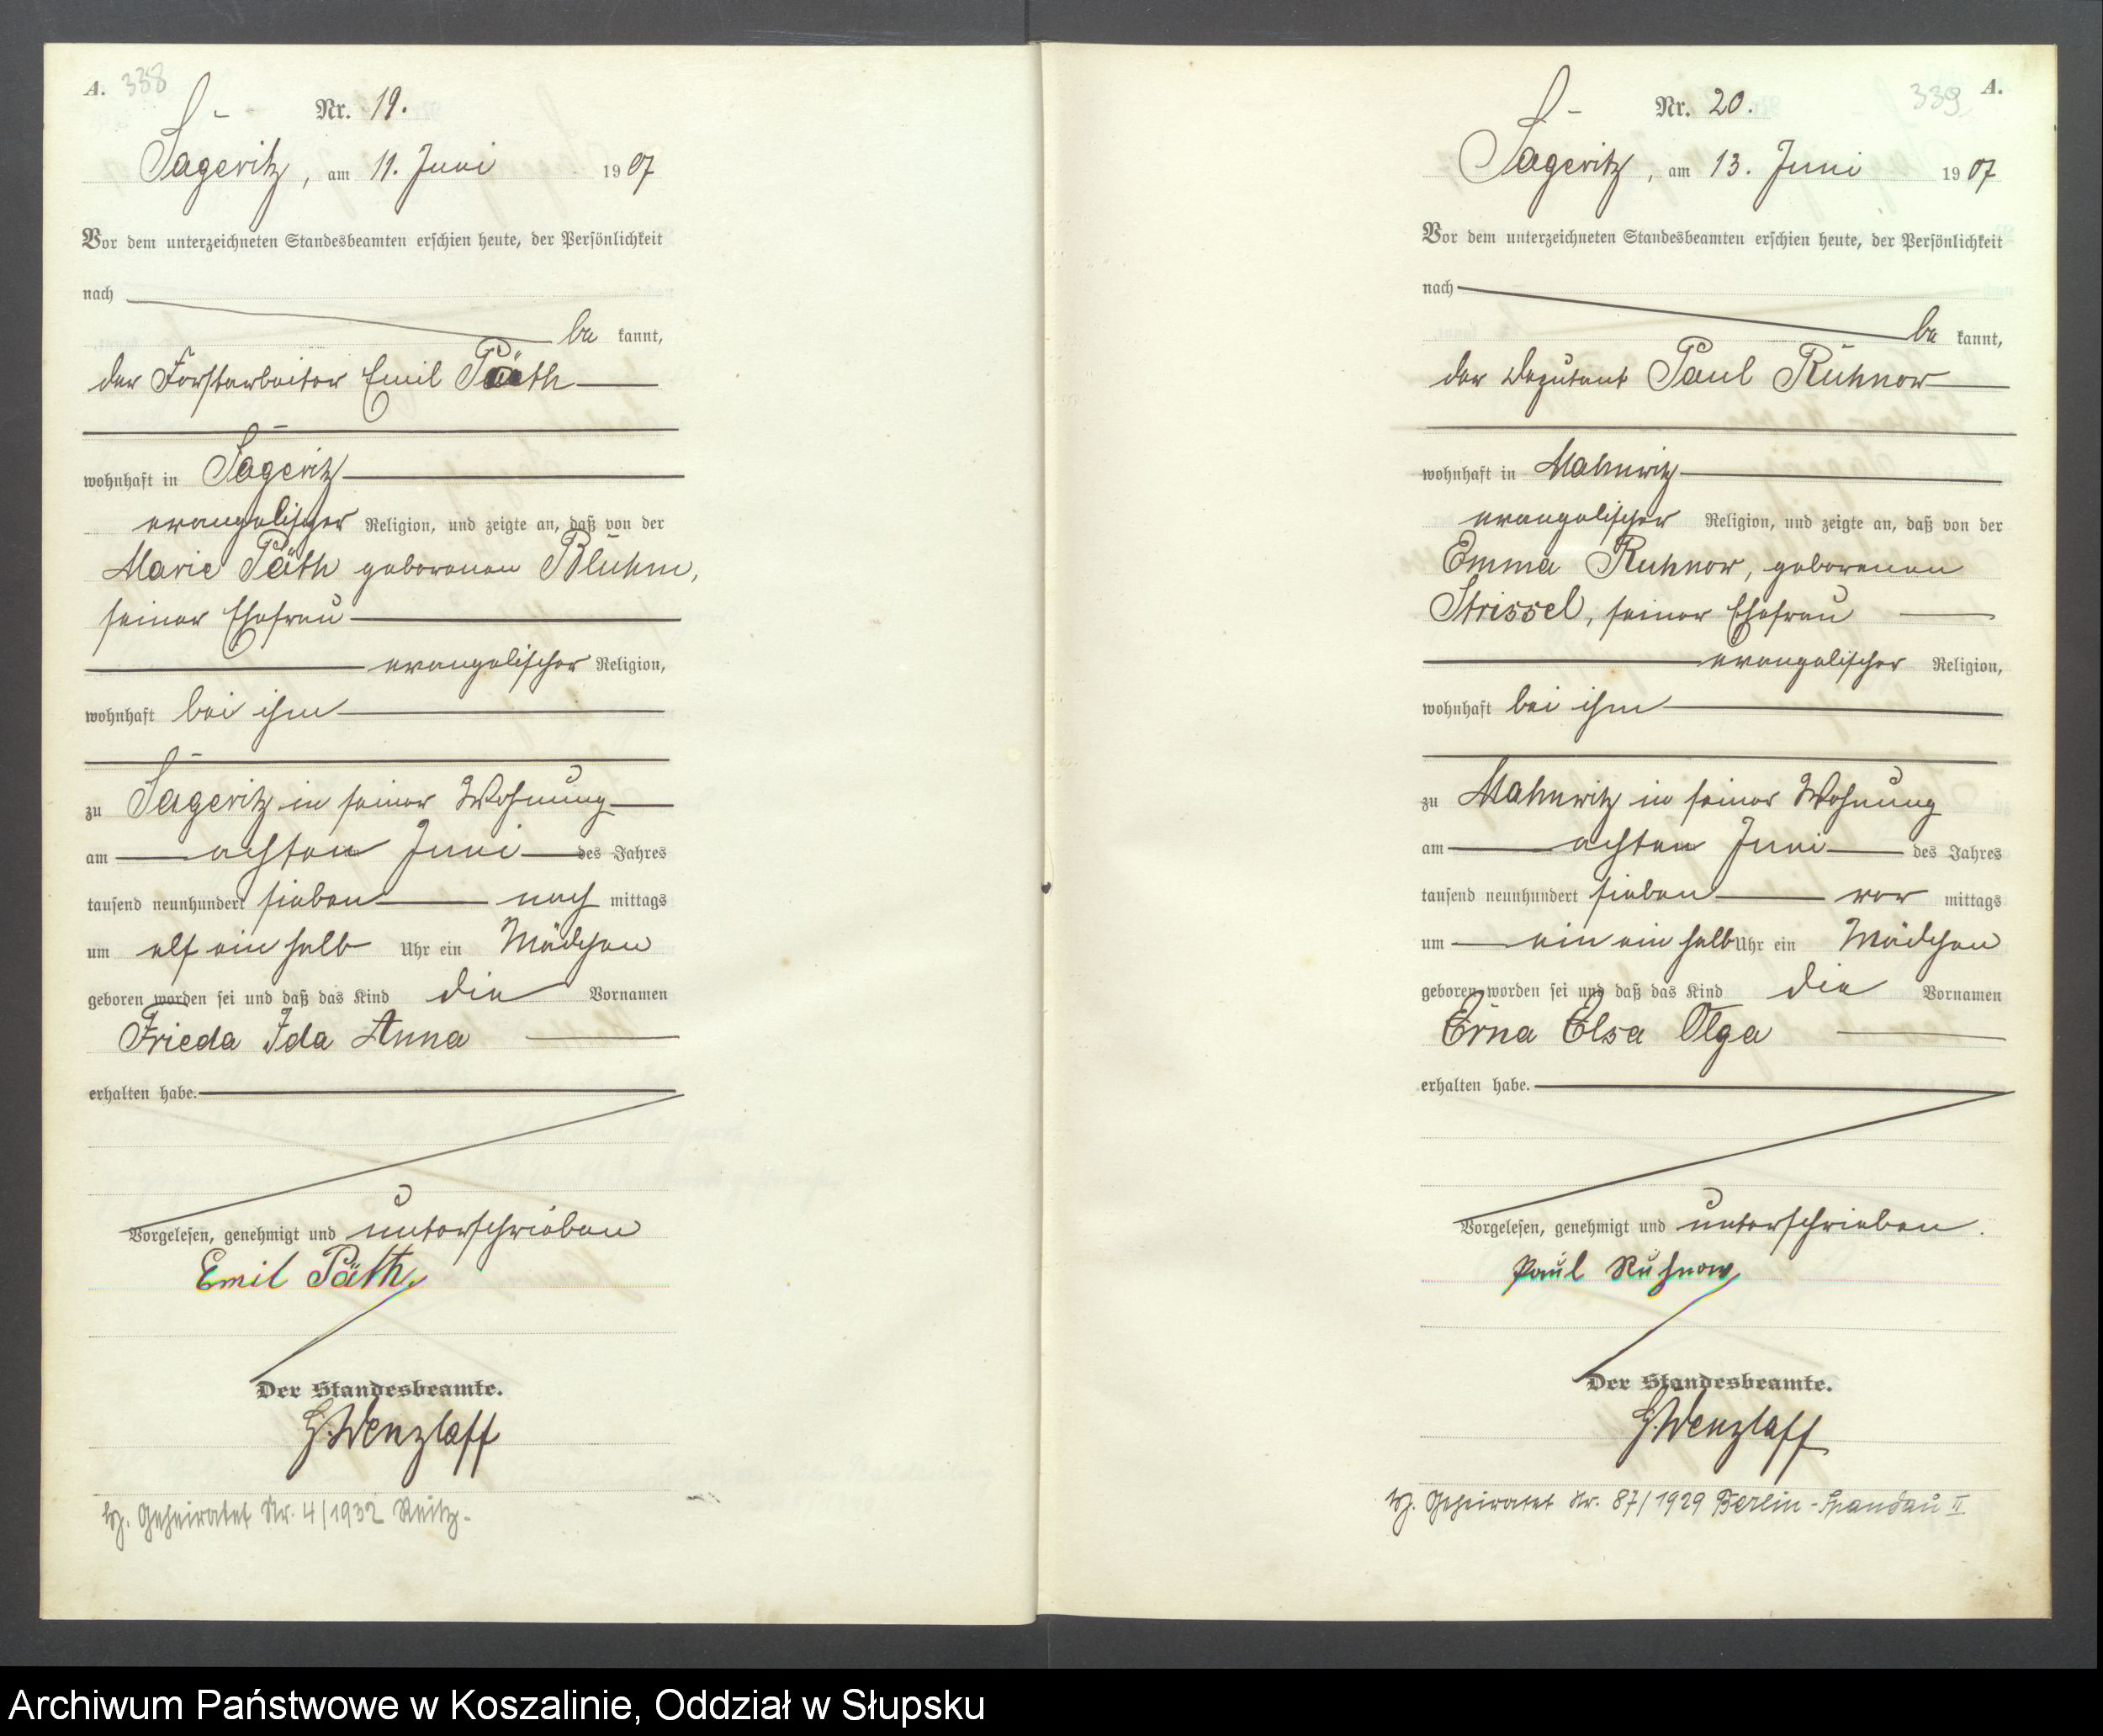 A. 338
Nr. 19.
Sageritz, am 11. Juni 1907
Vor dem unterzeichneten Standesbeamten erschien heute, der Persönlichkeit
nach
be kannt,
der Forstarbeiter Emil Päth
wohnhaft in Sageritz
evangelischer Religion, und zeigte an, daß von der
Marie Päth geborenen Blühm,
seiner Ehefrau
evangelischer Religion,
wohnhaft bei ihm
zu Sageritz in seiner Wohnung
am achten Juni des Jahres
tausend neunhundert sieben nach mittags
um elf ein halb Uhr ein Mädchen
geboren worden sei und daß das Kind die Vornamen
Frieda Ida Anna
erhalten habe.
Vorgelesen, genehmigt und unterschrieben
Emil Päth.
Der Standesbeamte.
H. Wenzlaff
Geheiratet Nr. 4/1932 Reitz.
339 A.
Nr. 20.
Sageritz, am 13. Juni 1907
Vor dem unterzeichneten Standesbeamten erschien heute, der Persönlichkeit
nach
be kannt,
der Deputant Paul Ruhnow
wohnhaft in Mahnwitz
evangelischer Religion, und zeigte an, daß von der
Emma Ruhnow, geborenen
Strissel, seiner Ehefrau
evangelischer Religion,
wohnhaft bei ihm
zu Mahnwitz in seiner Wohnung
am achten Juni des Jahres
tausend neunhundert sieben vor mittags
um ein ein halb Uhr ein Mädchen
geboren worden sei und daß das Kind die Vornamen
Erna Elsa Olga
erhalten habe.
Vorgelesen, genehmigt und unterschrieben.
Paul Ruhnow
Der Standesbeamte.
H. Wenzlaff
Geheiratet Nr. 87/1929 Berlin-Spandau II
Archiwum Państwowe w Koszalinie, Oddział w Słupsku